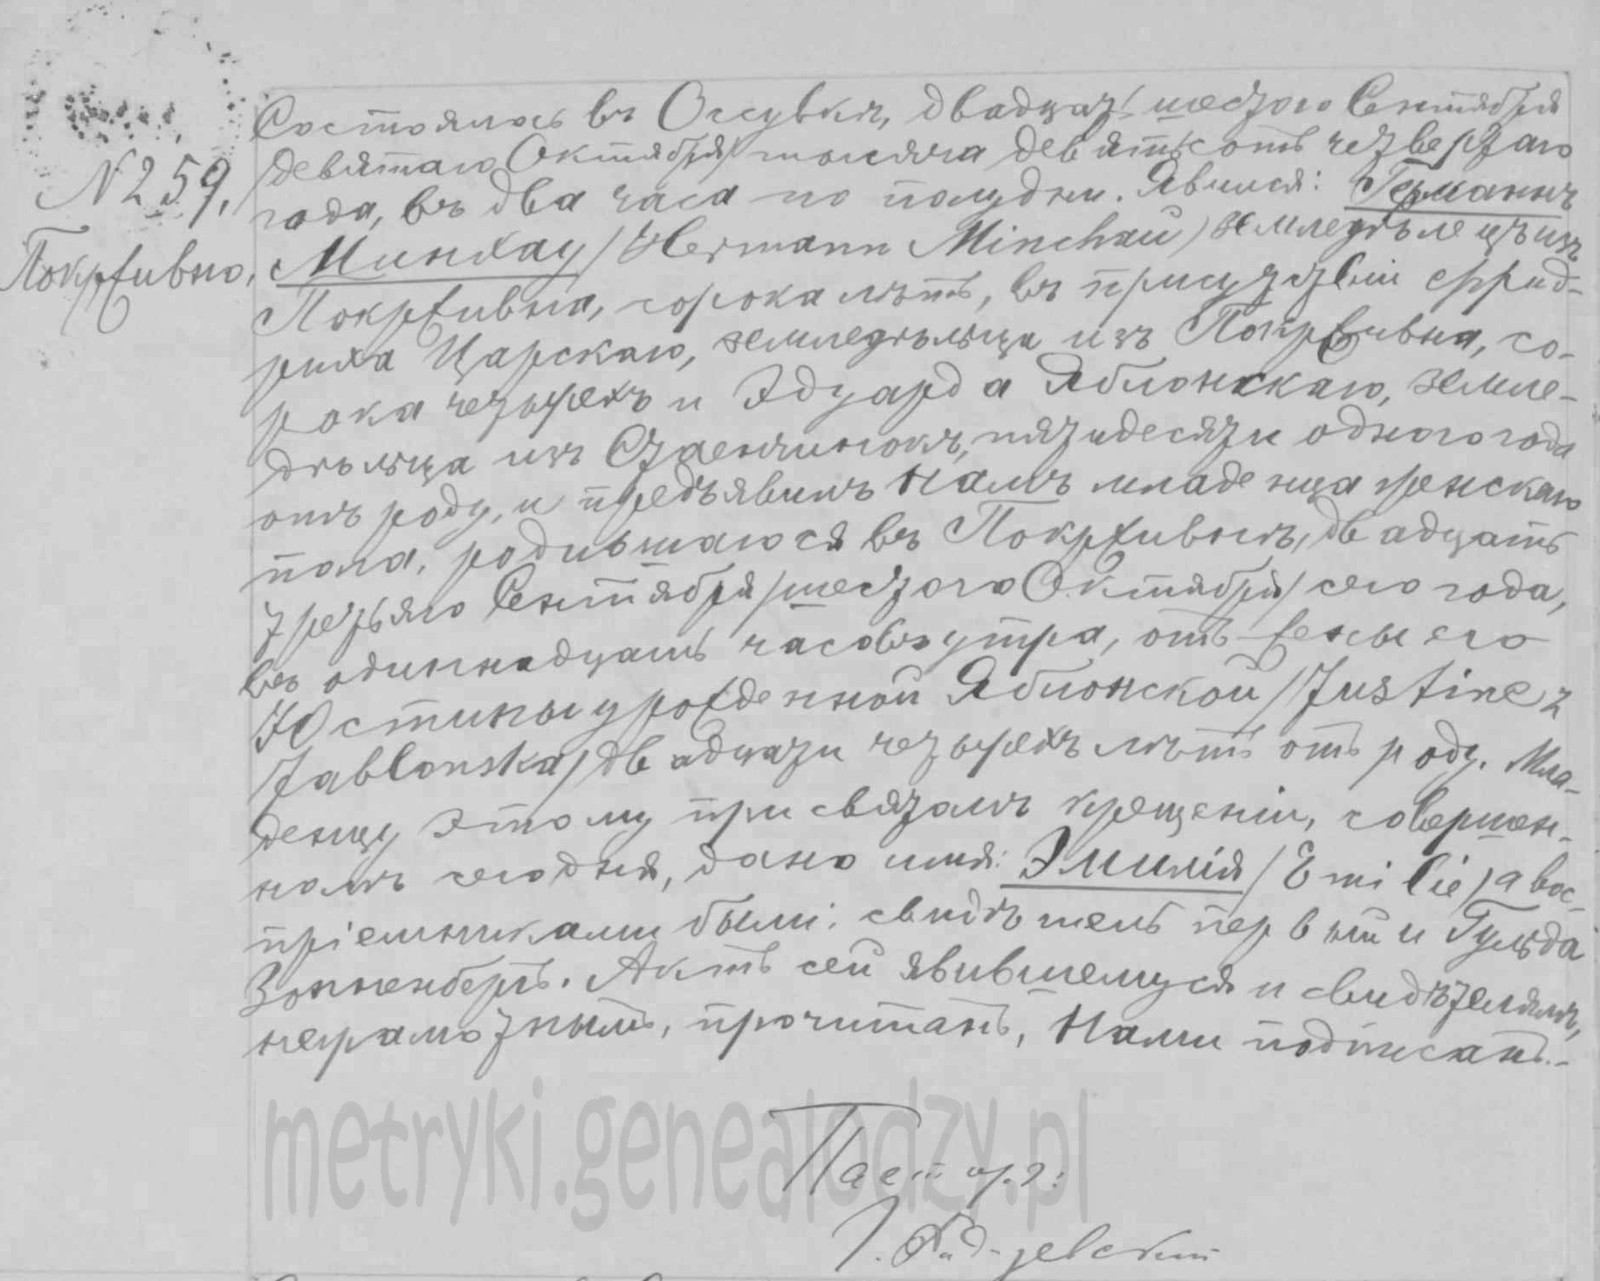 № 259.
Покрживно,
Состоялось въ Оссувкѣ, двадцать шестого Сентября
/девятаго Октября/ тысяча девятьсотъ четвертаго
года, въ два часа по полудни. Явился: Германнъ
Минхау /Hermann Minchau/ земледѣлецъ изъ
Покрживна, сорока лѣтъ, въ присутствіи Фрид-
риха Царскаго, земледѣльца изъ Покрживна, со-
рока четырехъ и Эдуарда Яблонскаго, земле-
дѣльца изъ пятидесяти одного года
отъ роду, и предъявилъ Намъ младенца женскаго
пола, родившагося въ Покрживнѣ, двадцать
третьяго Сентября /шестого Октября/ сего года,
въ одиннадцать часовъ утра, отъ жены его
Юстины урожденной Яблонской /Justine z
Jablonska/ двадцати четырехъ лѣтъ отъ роду. Мла-
денцу этому при святомъ крещеніи, совершен-
номъ сегодня, дано имя: Эмилія /Emilie/ а вос-
пріемниками были: свидѣтель первый и Гульда
Зонненбергъ. Актъ сей явившемуся и свидѣтелямъ,
неграмотнымъ, прочитанъ, Нами подписанъ.-
Пасторъ:
metryki.genealodzy.pl